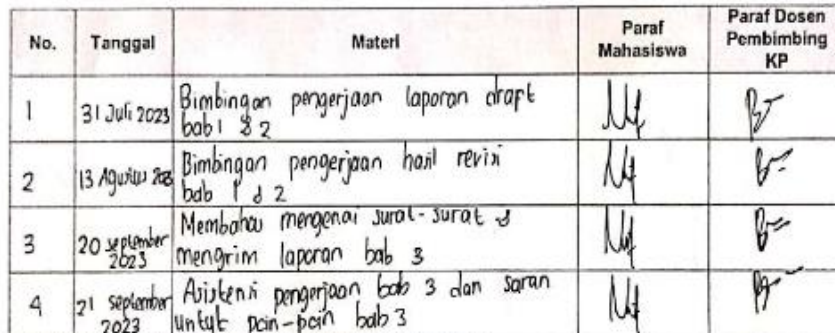 No. Tanggal Materi Paraf Mahasiswa Paraf Dosen Pembimbing KP
1 31 Juli 2023 Bimbingan pengerjaan laporan draft
bab 1 & 2
2 13 Agustus 2023 Bimbingan pengerjaan hasil revisi
bab 1 & 2
3 20 september 2023 Membahas mengenai surat-surat &
mengrim laporan bab 3
4 21 september 2023 Asistensi pengerjaan bab 3 dan saran
untuk poin-poin bab 3